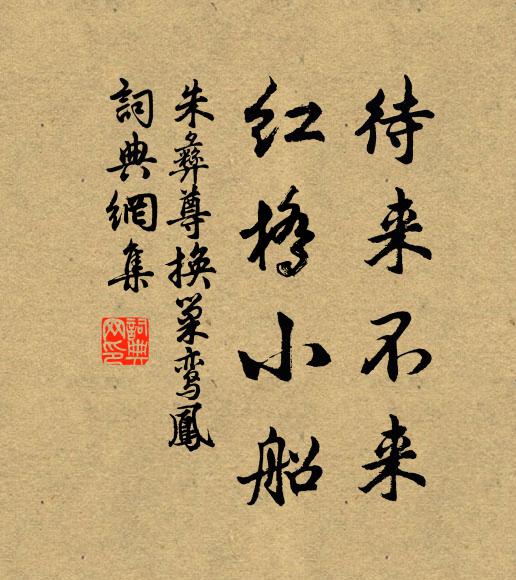 待来不来
红橋小船
朱彝尊换巢鸾鳳
詞典網集
詞典网印